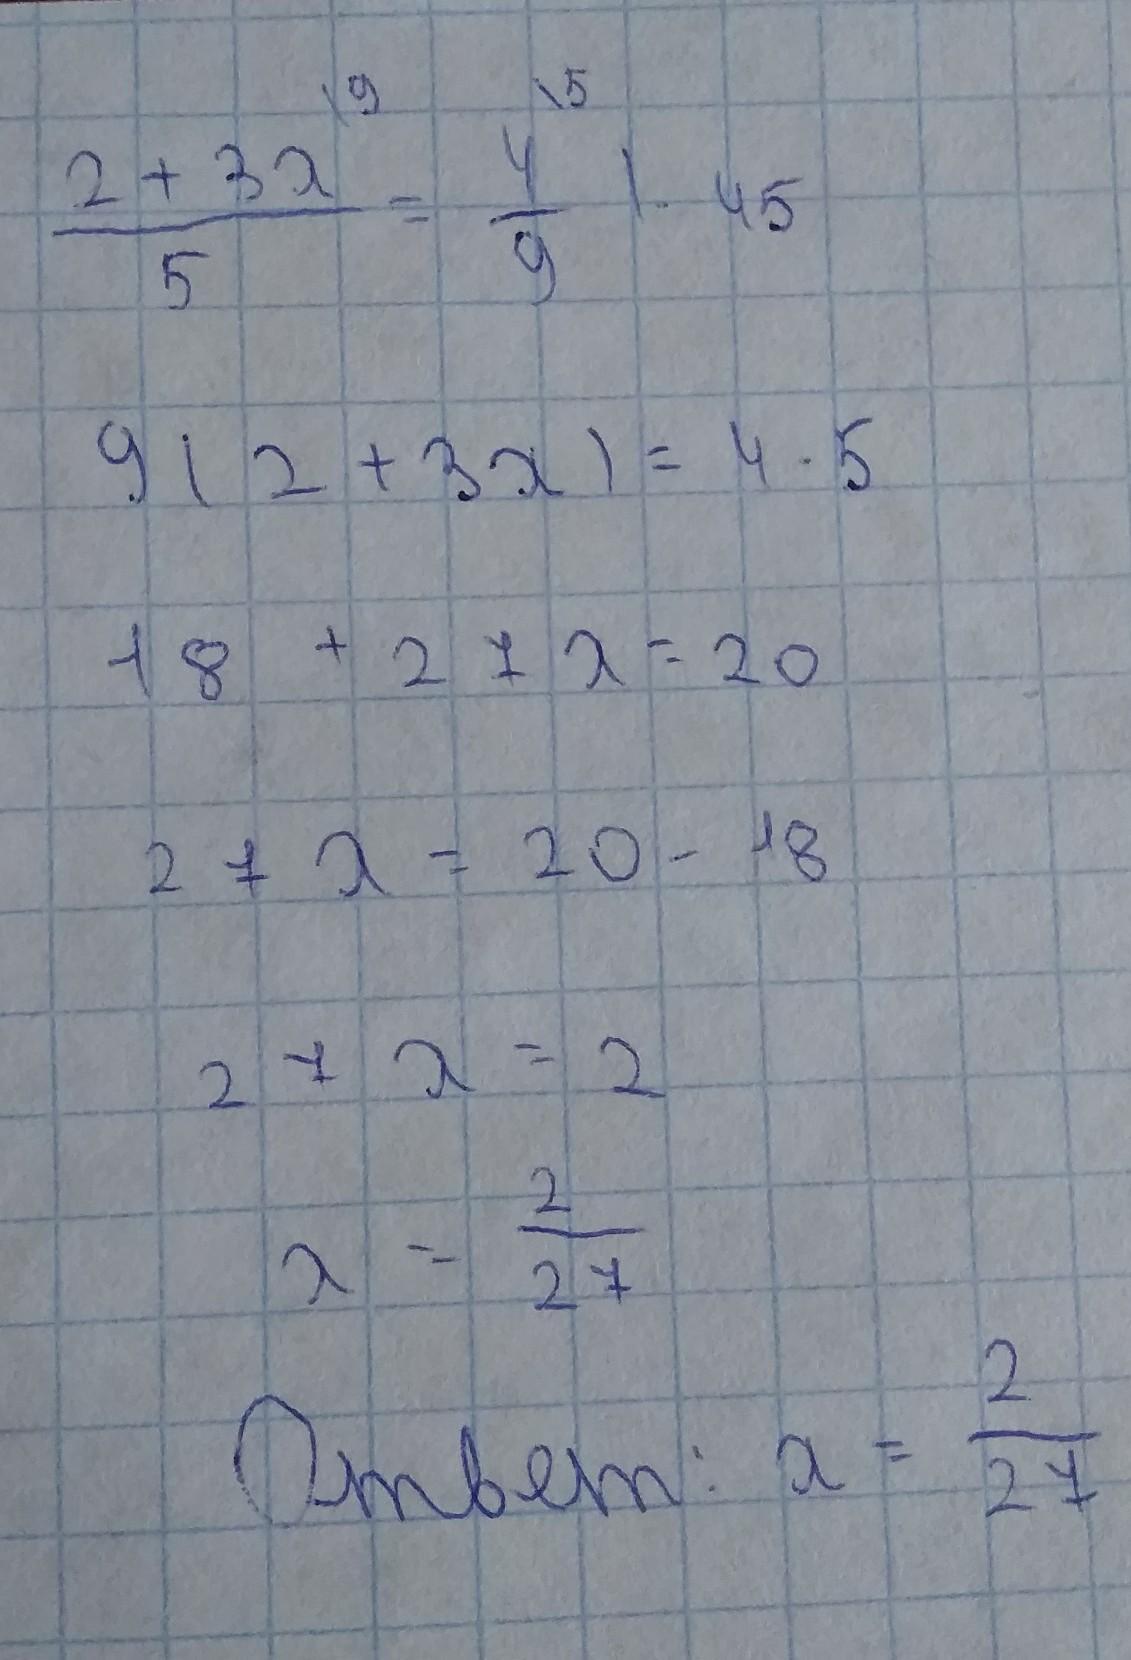 \9 \5
2 + 3x / 5 = 4 / 9 | · 45
9(2 + 3x) = 4 · 5
18 + 27x = 20
27x = 20 - 18
27x = 2
x = 2 / 27
Ответ: x = 2 / 27